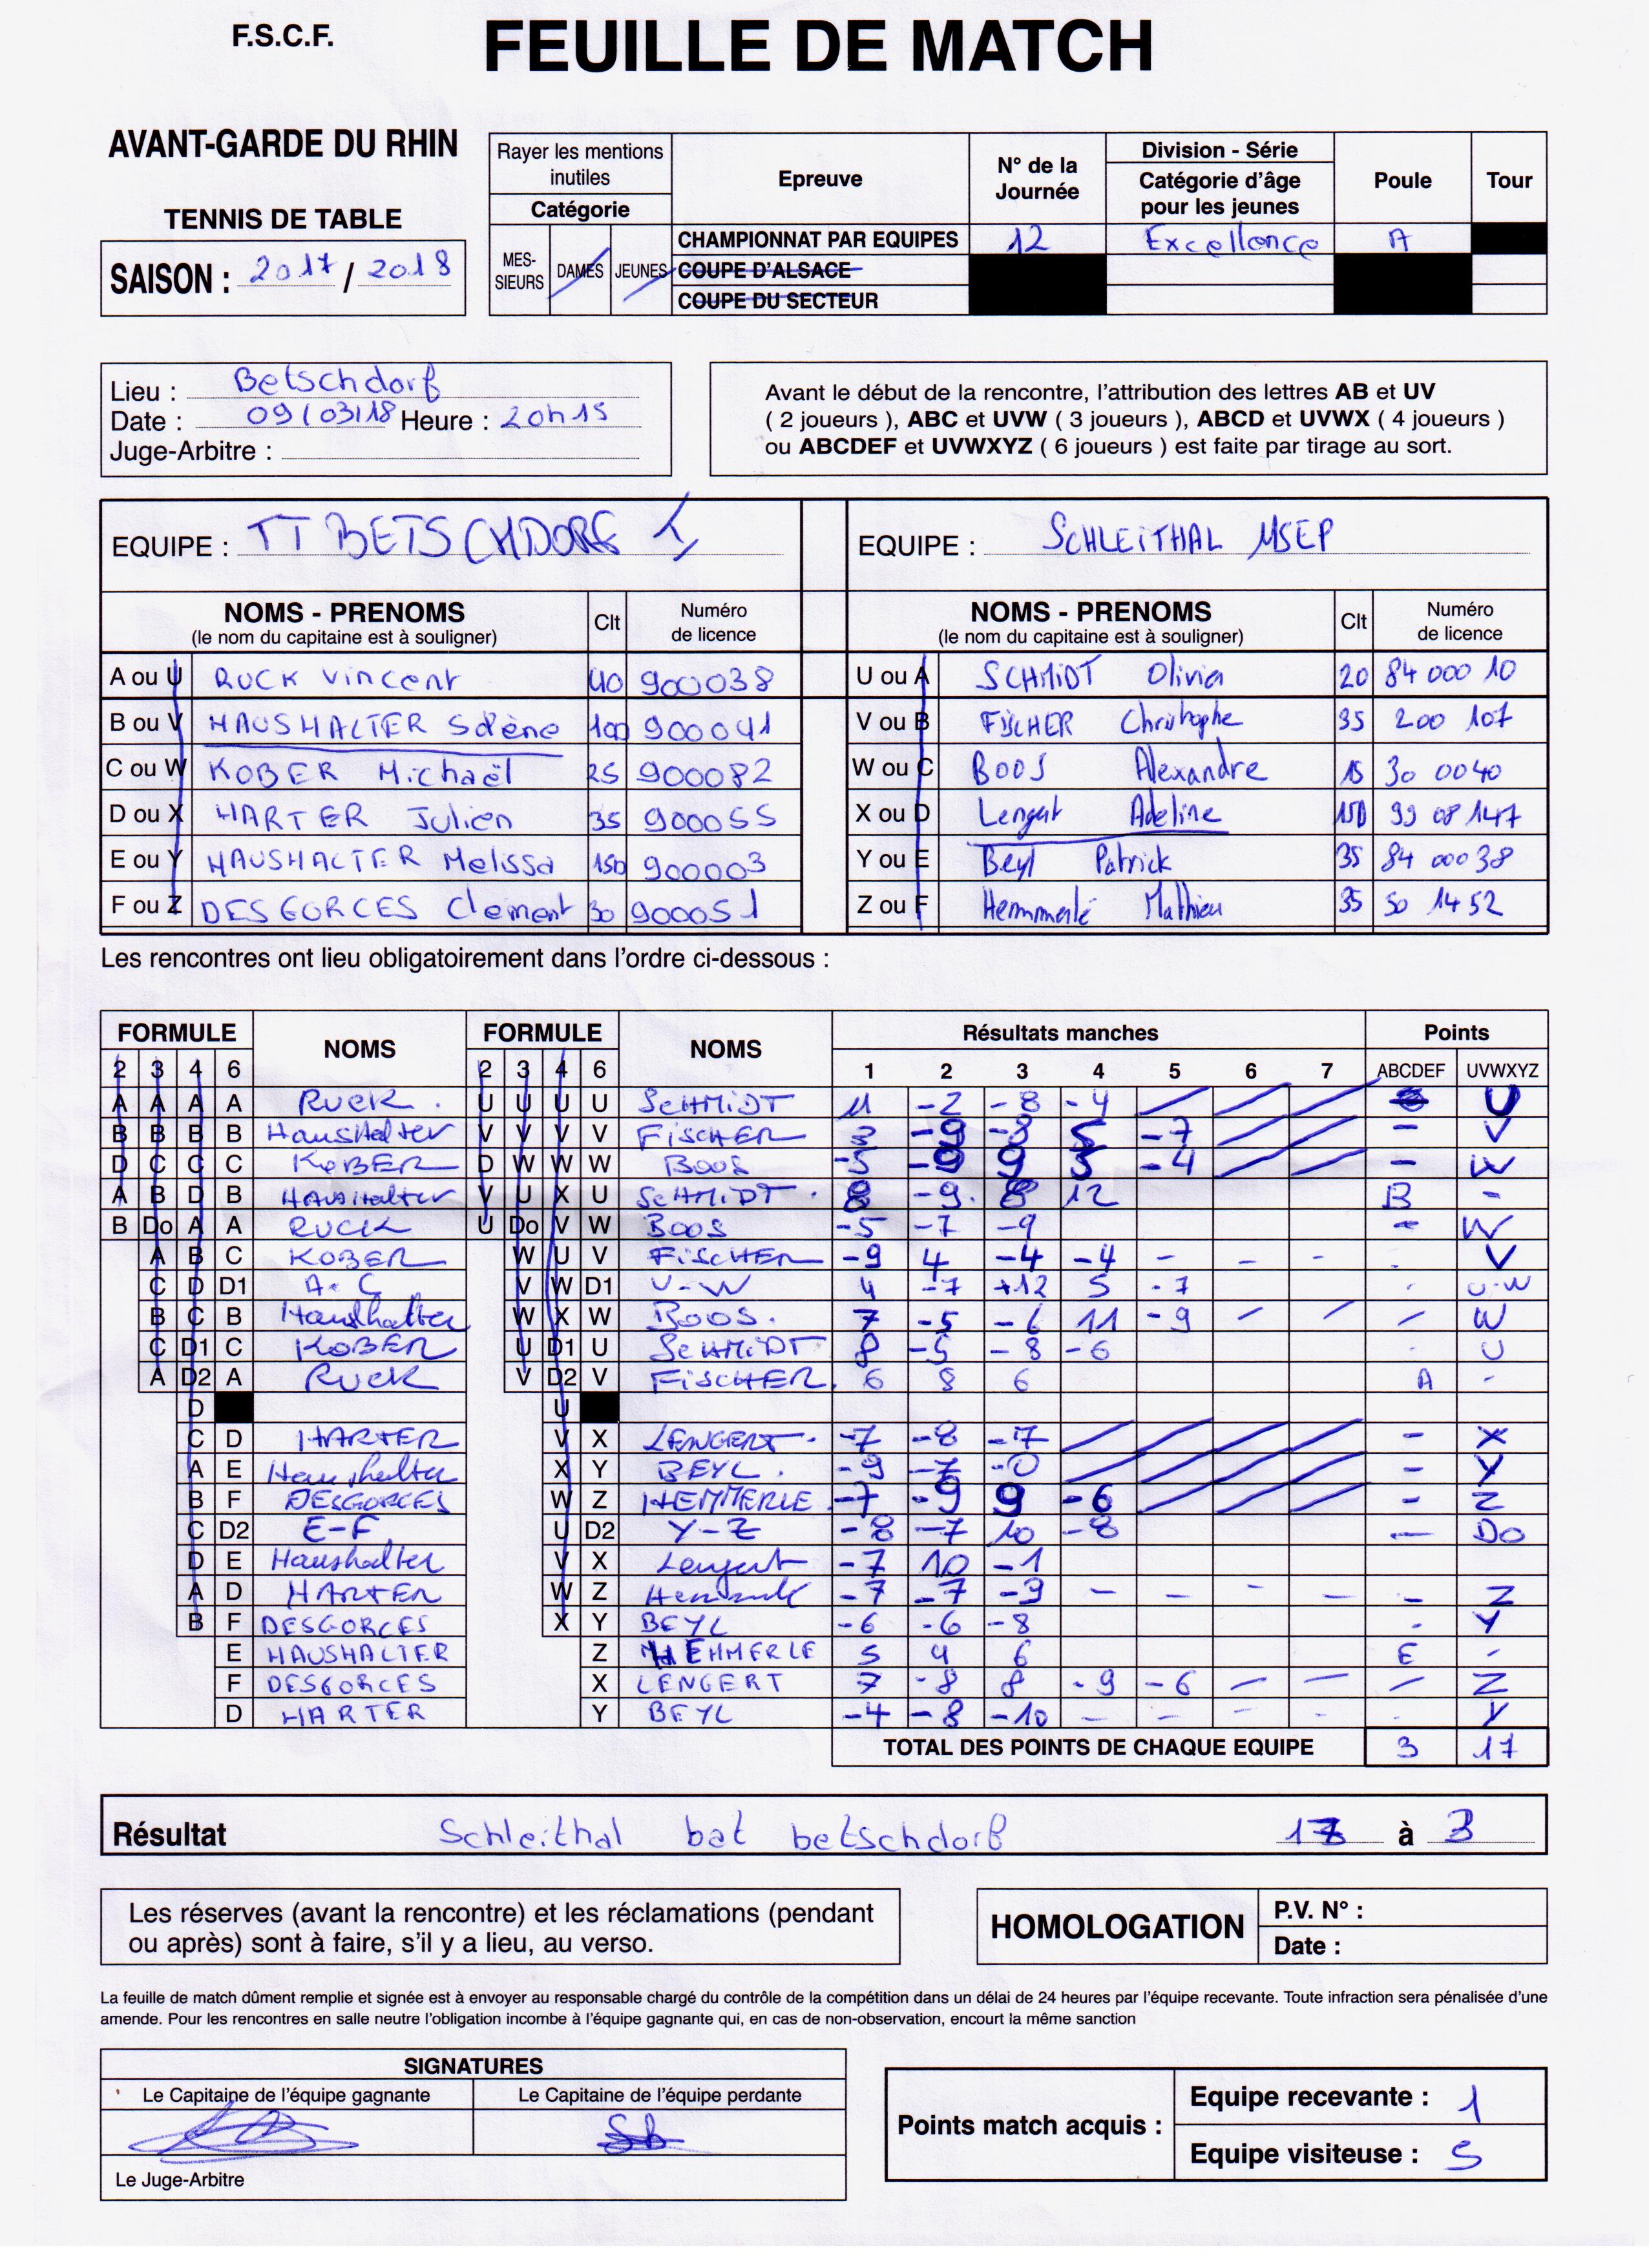 F.S.C.F.
FEUILLE DE MATCH
AVANT-GARDE DU RHIN
TENNIS DE TABLE
SAISON : 2017 / 2018
Rayer les mentions inutiles
Catégorie
MES-SIEURS DAMES JEUNES
Epreuve
N° de la Journée
Division - Série
Catégorie d'âge pour les jeunes
Poule
Tour
CHAMPIONNAT PAR EQUIPES 12 Excellence A
COUPE D'ALSACE
COUPE DU SECTEUR
Lieu : Betschdorf
Date : 09/03/18 Heure : 20h15
Juge-Arbitre :
Avant le début de la rencontre, l'attribution des lettres AB et UV
( 2 joueurs ), ABC et UVW ( 3 joueurs ), ABCD et UVWX ( 4 joueurs )
ou ABCDEF et UVWXYZ ( 6 joueurs ) est faite par tirage au sort.
EQUIPE : TT BETSCHDORF 1
EQUIPE : SCHLEITHAL MSEP
NOMS - PRENOMS Clt Numéro de licence
(le nom du capitaine est à souligner)
NOMS - PRENOMS Clt Numéro de licence
(le nom du capitaine est à souligner)
A ou U RUCK Vincent 40 900038
U ou A SCHMIDT Olivier 20 84 000 10
B ou V HAUSHALTER Solène 100 900041
V ou B FISCHER Christophe 35 200 107
C ou W KOBER Michaël 25 900082
W ou C BOOS Alexandre 15 30 0040
D ou X HARTER Julien 35 900055
X ou D Lengert Adeline 150 99 08 147
E ou Y HAUSHALTER Melissa 150 900003
Y ou E Beyl Patrick 35 84 00038
F ou Z DESGORCES Clement 30 900051
Z ou F Hemmerlé Mathieu 35 50 1452
Les rencontres ont lieu obligatoirement dans l'ordre ci-dessous :
FORMULE NOMS FORMULE NOMS Résultats manches Points
2 3 4 6 2 3 4 6 1 2 3 4 5 6 7 ABCDEF UVWXYZ
A A A A RUCK U U U U SCHMIDT 11 -2 -8 -4 U
B B B B Haushalter V V V V FISCHER 3 -9 -3 5 -7 - V
D C C C KOBER D W W W BOOS -5 -9 9 5 -4 - W
A B D B HAUSHALTER V U X U SCHMIDT 8 -9 8 12 B -
B Do A A RUCK U Do V W BOOS -5 -7 -9 - W
A B C KOBER W U V FISCHER -9 4 -4 -4 - - - V
C D D1 A-C V W D1 U-W 4 -7 +12 5 -7 U-W
B C B Haushalter W X W BOOS 7 -5 -6 11 -9 - W
C D1 C KOBER U D1 U SCHMIDT 8 -5 -8 -6 U
A D2 A RUCK V D2 V FISCHER 6 8 6 A -
D U
C D HARTER V X LENGERT -7 -8 -7 - X
A E Haushalter X Y BEYL -9 -7 -0 - Y
B F DESGORCES W Z HEMMERLE -7 -9 9 -6 - Z
C D2 E-F U D2 Y-Z -8 -7 10 -8 - Do
D E Haushalter V X Lengert -7 10 -1
A D HARTER W Z -7 -7 -9 - - - - - Z
B F DESGORCES X Y BEYL -6 -6 -8 - Y
E HAUSHALTER Z HEMMERLE 5 4 6 E -
F DESGORCES X LENGERT 7 -8 8 -9 -6 - - - Z
D HARTER Y BEYL -4 -8 -10 - - - - Y
TOTAL DES POINTS DE CHAQUE EQUIPE 3 17
Résultat Schleithal bat betschdorf 17 à 3
Les réserves (avant la rencontre) et les réclamations (pendant
ou après) sont à faire, s'il y a lieu, au verso.
HOMOLOGATION
P.V. N° :
Date :
La feuille de match dûment remplie et signée est à envoyer au responsable chargé du contrôle de la compétition dans un délai de 24 heures par l'équipe recevante. Toute infraction sera pénalisée d'une
amende. Pour les rencontres en salle neutre l'obligation incombe à l'équipe gagnante qui, en cas de non-observation, encourt la même sanction
SIGNATURES
Le Capitaine de l'équipe gagnante
Le Capitaine de l'équipe perdante
Le Juge-Arbitre
Points match acquis :
Equipe recevante : 1
Equipe visiteuse : 5